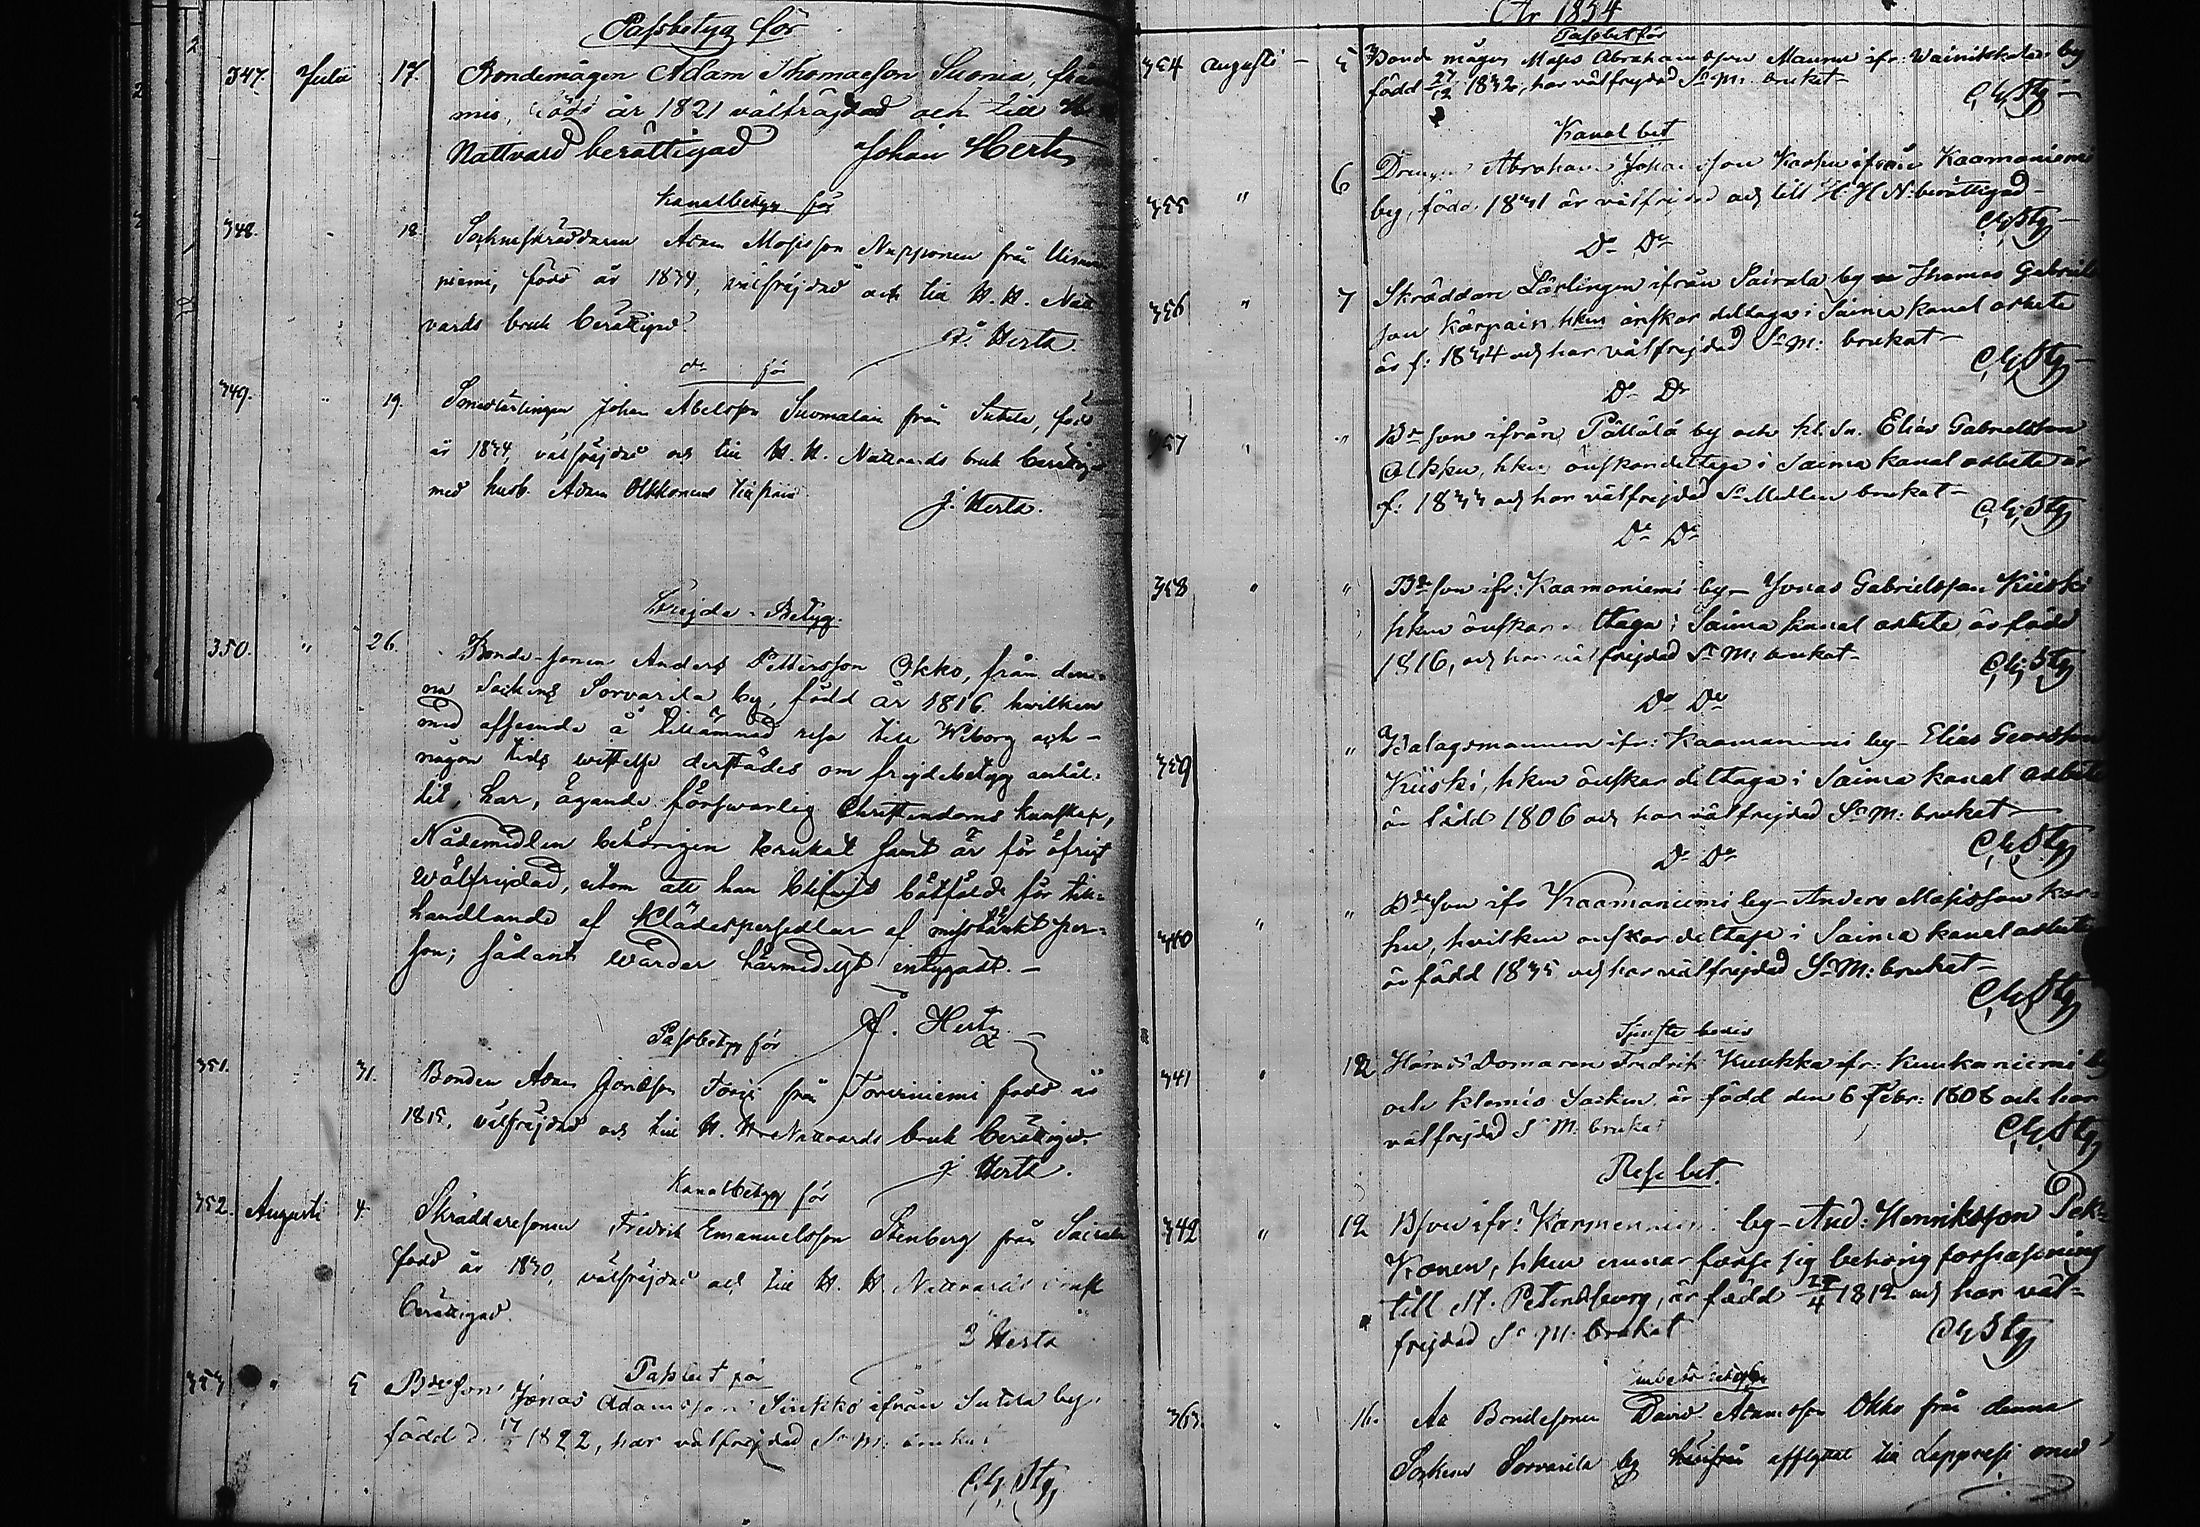 Passbetyg för
347. Julii 17. Bondemågen Adam Thomasson Suonia, från
mis, född år 1821 välfräjdad och till H
Nattvard berättigad Johan Hertz
Kanalbetyg för
348. 18. Sockneskräddaren Adam Mosisson Nupponen från
niemi, född år 1834, välfräjdad och till H. H. Natt
vards bruk berättigad.
J. Hertz.
do för
349. 19. Smedlärlingen Johan Abelsson Suomalain från Suttela, född
år 1834, välfräjdad och till H. H. Nattvards bruk berättigad
med husb. Adam Olkkonens
J. Hertz.
Frejde-Betyg.
350. " 26. Bonde-sonen Anders Pettersson Okko, från den-
na Sockens Sorvarila by, född år 1816 hvilken
med afseende å tillämnad resa till Wiborg och
någon tids vistelse derstädes om frejdebetyg anhål-
lit, har, ägande försvarlig Christendoms kunskap,
Nådemedlen behörigen brukat samt är för öfrigt
Wälfrejdad, utom att han blifvit bötfäld för till-
handlande af Klädespersedlar af misstänkt per-
son; sådant warder härmedelst intygadt. —
J. Hertz
Passbetyg för
351. 31. Bonden Adam Jonasson Torvi från Torviniemi född år
1815, välfräjdad och till H. H. Nattvards bruk berättigad.
J. Hertz.
Kanalbetyg för
352. Augusti 4. Skräddaresonen Fredrik Emanuelsson Stenberg från Sairala
född år 1830, välfräjdad och till H. H. Nattvards bruk
berättigad.
J Hertz
Passbet för
353 " 5 Bdeson Jonas Adamsson Sinkko ifrån Suttela by,
född d. 17 1822, har välfrejdad S. M: brukat
C. G. Stg
År 1854
Passbet för
354 augusti — 5 Bonde mågen Moses Abrahamsson Maunu ifr: Wainikkala by
född 27/12 1832, har välfrejdad S. M: brukat —
C. G. Stg —
Kanal bet
355 " 6 Drengen Abraham Johansson Karhu ifrån Kaamaniemi
by, född 1831 är välfrejdad och till H. H. N: berättigad —
C. G. Stg —
Do Do
356 " 7 Skräddare Lärlingen ifrån Sairala by Thomas Gabriels
son Kärpäin hken önskar deltaga i Saima kanal arbete
är f: 1834 och har välfrejdad S. M: brukat —
C. G. Stg —
Do Do
357 " " Bdeson ifrån Pällälä by och kl. Sn. Elias Gabrielsson
Olkku, hken önskar deltaga i Saima kanal arbete är
f: 1833 och har välfrejdad S. Medlen brukat —
C. G. Stg
Do Do
358 " " Bdeson ifr: Kaamaniemi by — Jonas Gabrielsson Kiiski
hken önskar deltaga i Saima kanal arbete, är född
1816, och har välfrejdad S. M: brukat —
C. G. Stg
Do Do
359 " Bolagsmannen ifr: Kaamaniemi by — Elias
Kiiski, hken önskar deltaga i Saima kanal arbete
är född 1806 och har välfrejdad S. M: brukat —
C. G. Stg
Do Do
340 " " Bdeson ifr Kaamaniemi by — Anders Mosisson Kar-
hu, hvilken önskar deltaga i Saima kanal arbete
är född 1835 och har välfrejdad S. M: brukat —
C. G. Stg
Tjenste bevis
341 " 12 Domaren Fredrik Kuukka ifr: Kuukaniemi by
och Klemis Socken är född den 6 Febr: 1808 och har
välfrejdad S. M: brukat
C. G. Stg
Rese bet.
342 " 12 Bson ifr: by — And: Henriksson Pek-
Konen, hken ärnar förse sig behörig förpassning
till St. Petersburg, är född /4 1812 och har väl-
frejdad S. M: brukat
C G Stg
363. " 16. At Bondesonen David Adamsson Okko från denna
Sockens Sorvarila by härifrån afflyttat till Lappvesi med